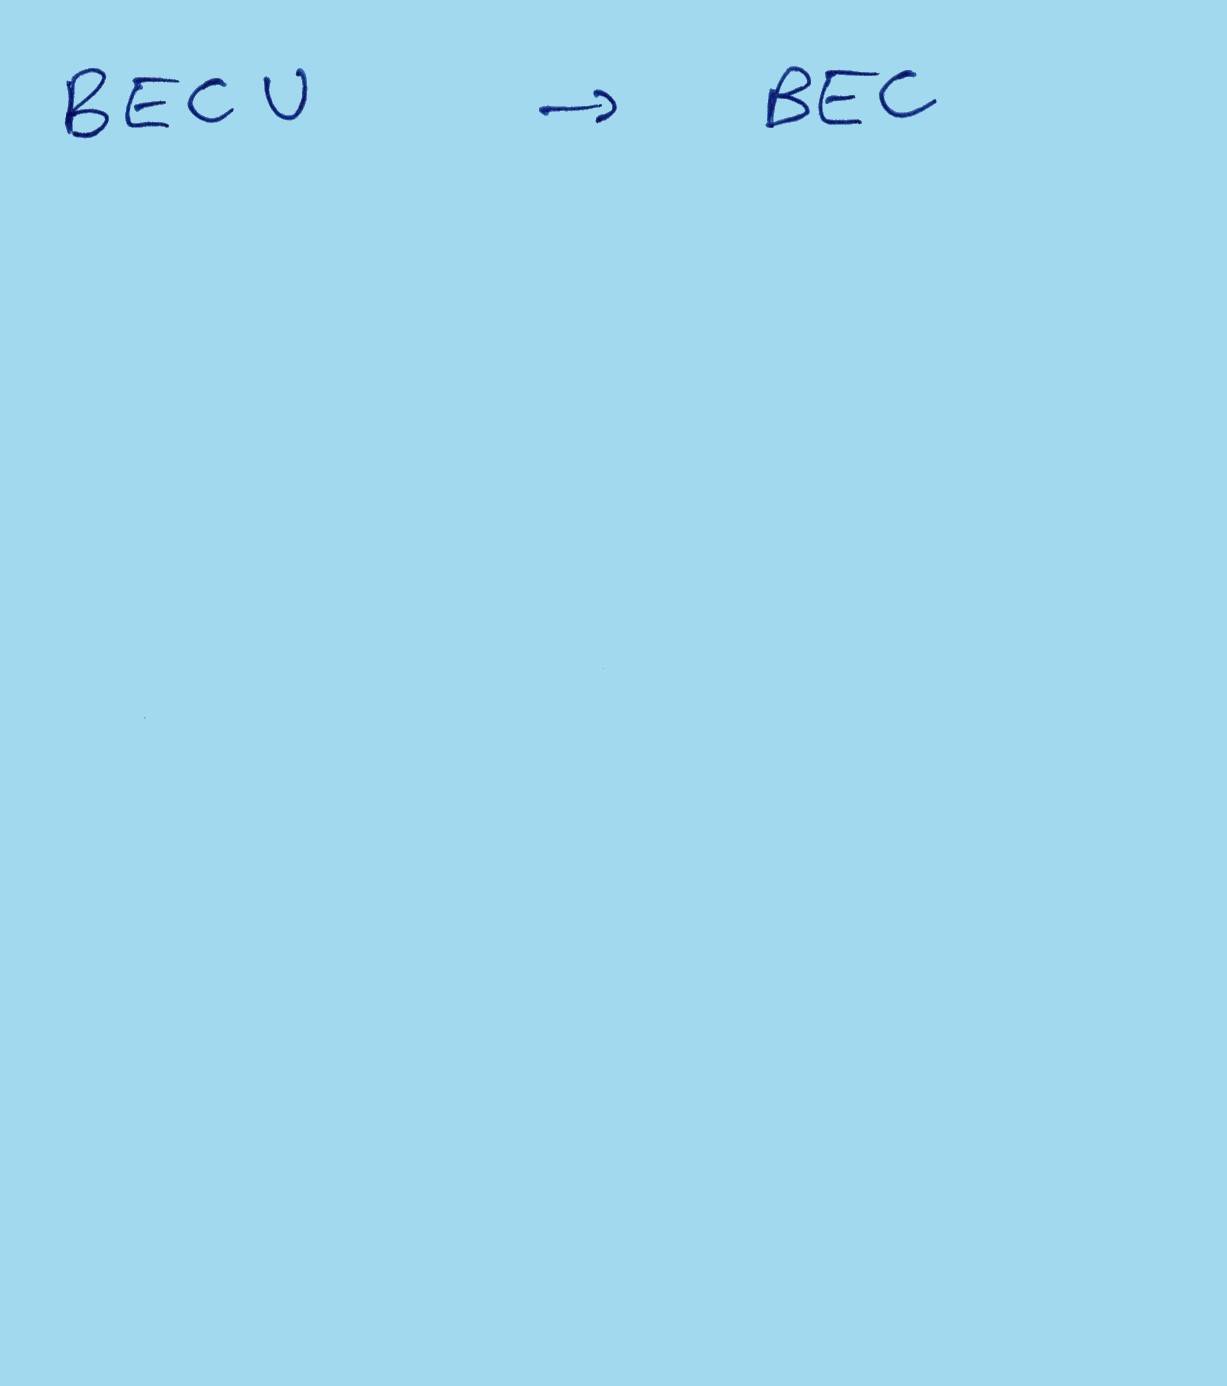 BECU → BEC